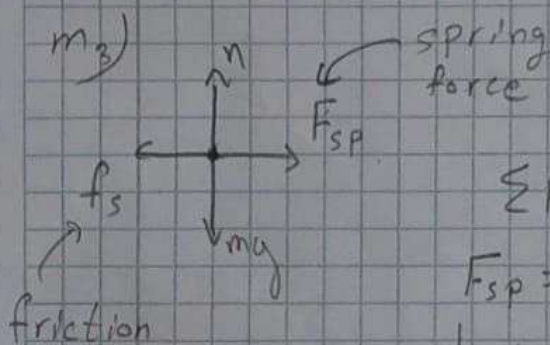 m3)
n
spring
force
Fsp
fs
Σ
mg
Fsp =
friction